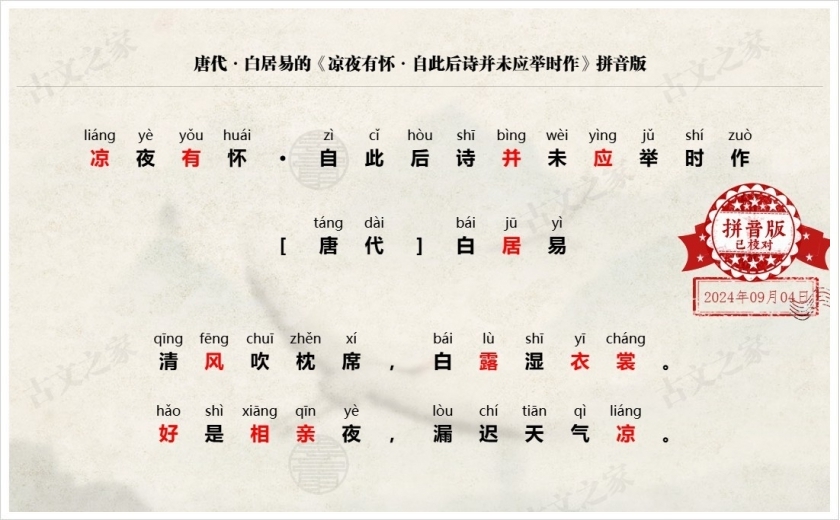 唐代·白居易的《凉夜有怀·自此后诗并未应举时作》拼音版
liáng yè yǒu huái zì cǐ hòu shī bìng wèi yìng jǔ shí zuò
凉夜有怀·自此后诗并未应举时作
táng dài bái jū yì
[唐代]白居易
拼音版
已校对
2024年09月04日
qīng fēng chuī zhěn xí bái lù shī yī cháng
清风吹枕席,白露湿衣裳。
hǎo shì xiāng qīn yè lòu chí tiān qì liáng
好是相亲夜,漏迟天气凉。
古文之家
古文之家
古文之家
古文之家
古文之家
古文之家